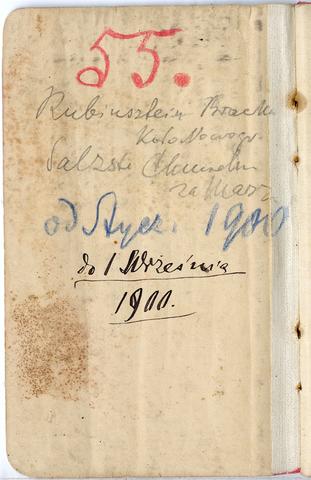 55.
Rubinsztein Brack
Koło Nowogr
Salzste Chmieln
za Marsz
od Stycz. 1900
do 1 Września
1900.